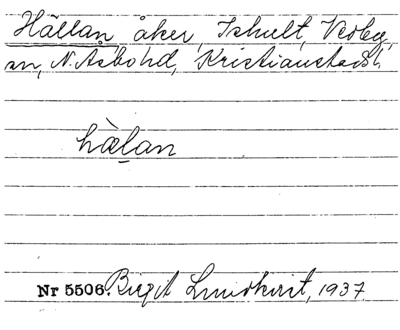 Hällan, åker, Ishult, Verbg,
sn, N. Åsbo hd, Kristianstads l.
hä̀lan
Nr 5506. Birgit Lundkvist, 1937